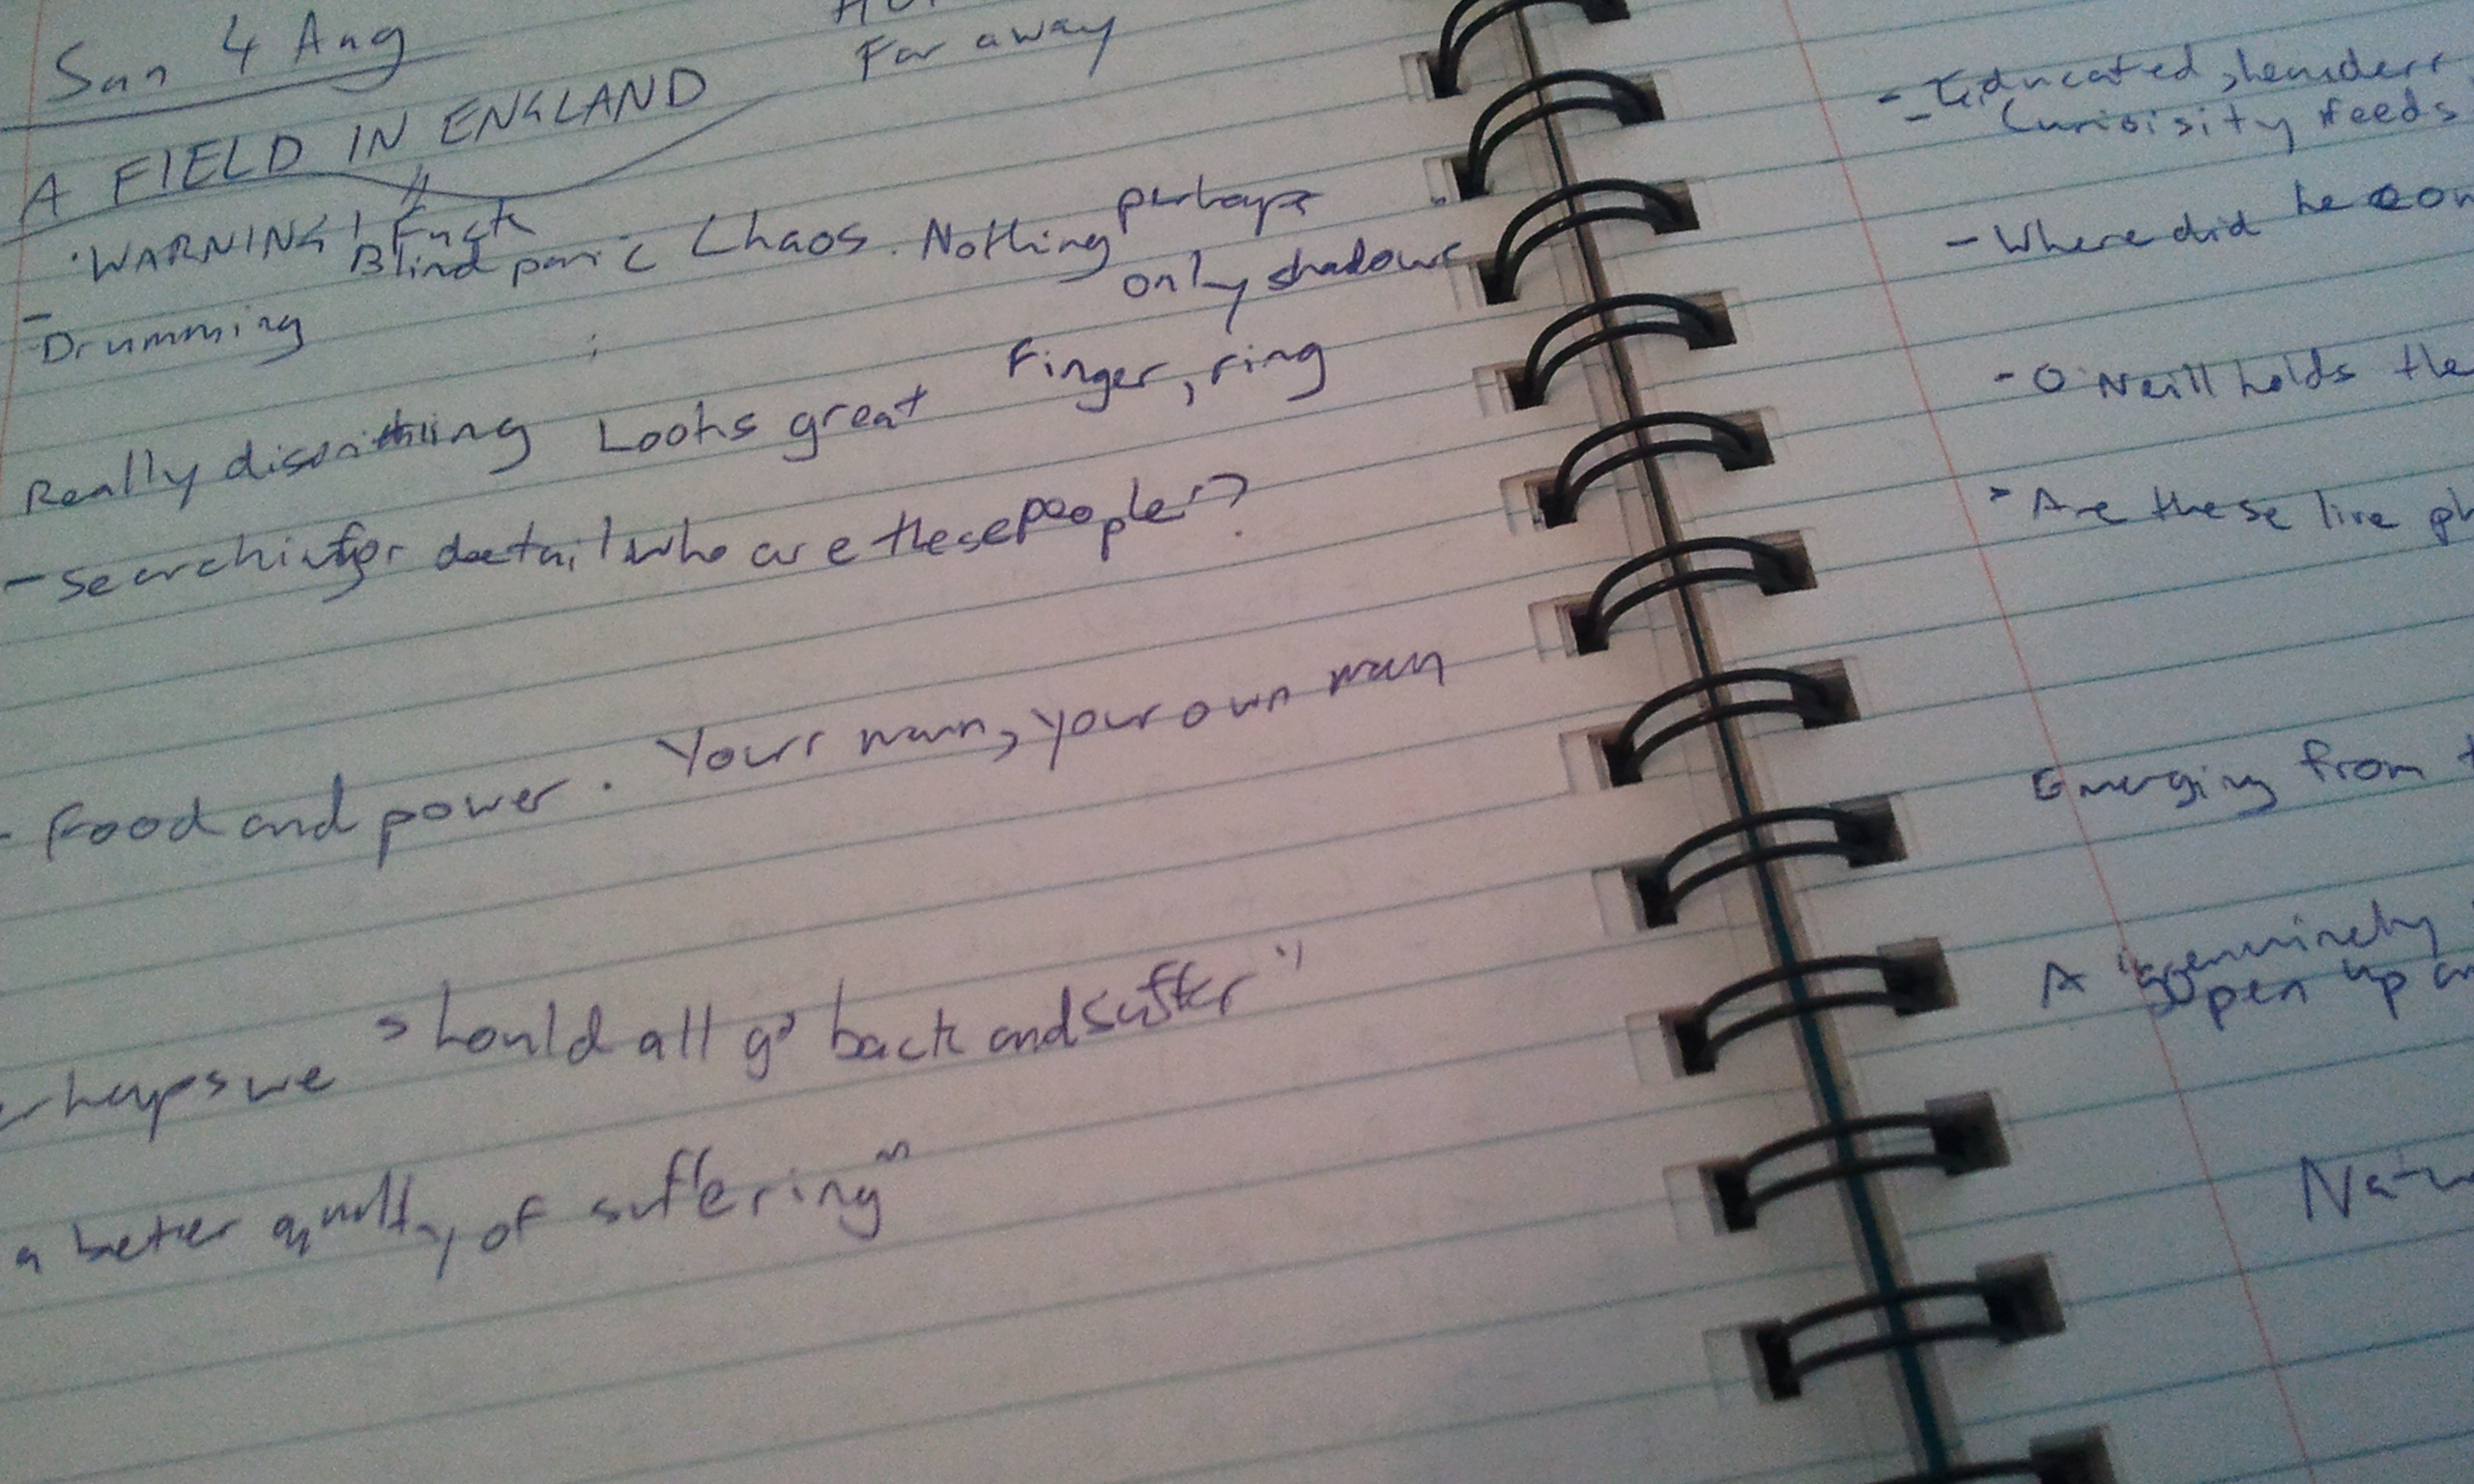 Sun 4 Aug
Far away
A FIELD IN ENGLAND
"WARNING"! Fuck
Blind panic Chaos. Nothing perhaps
only shadows
- Drumming
Really disorienting Looks great Finger, ring
- Searching for detail who are these people?
- Food and power. Your man, your own man
erhaps we should all go back and suffer"
a better quality of suffering"
- Educated,
- Curiosity feeds
- Where did he
- O'Neill holds the
- Are these live
Emerging from
A "genuinely
open up